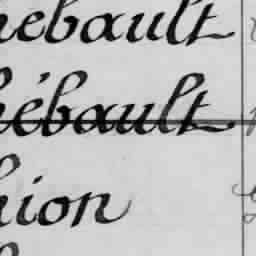 hebault
hébault
hion